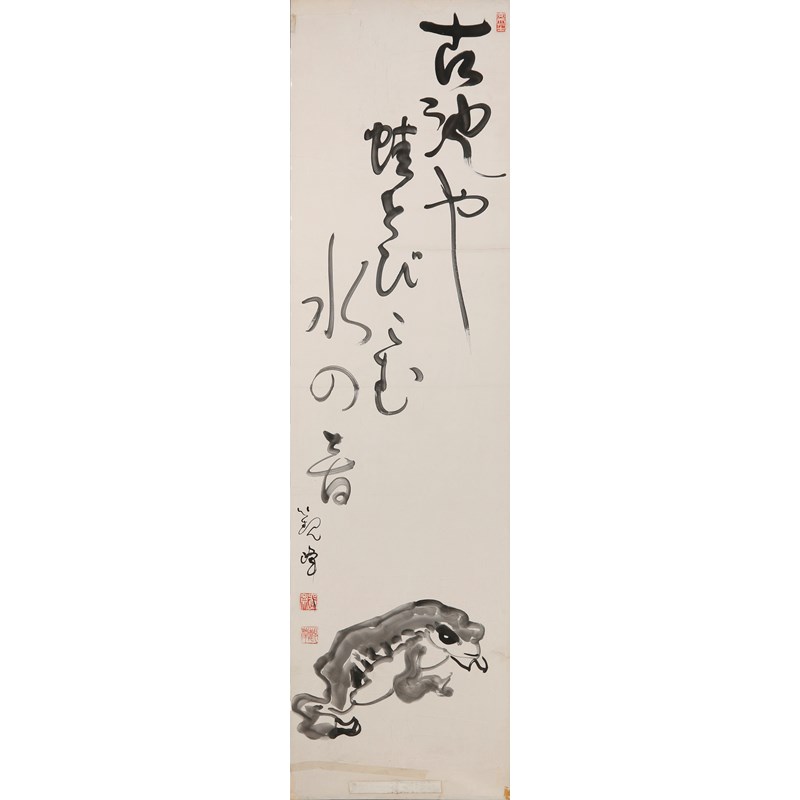 古池や
蛙とびこむ
水の音
観峰